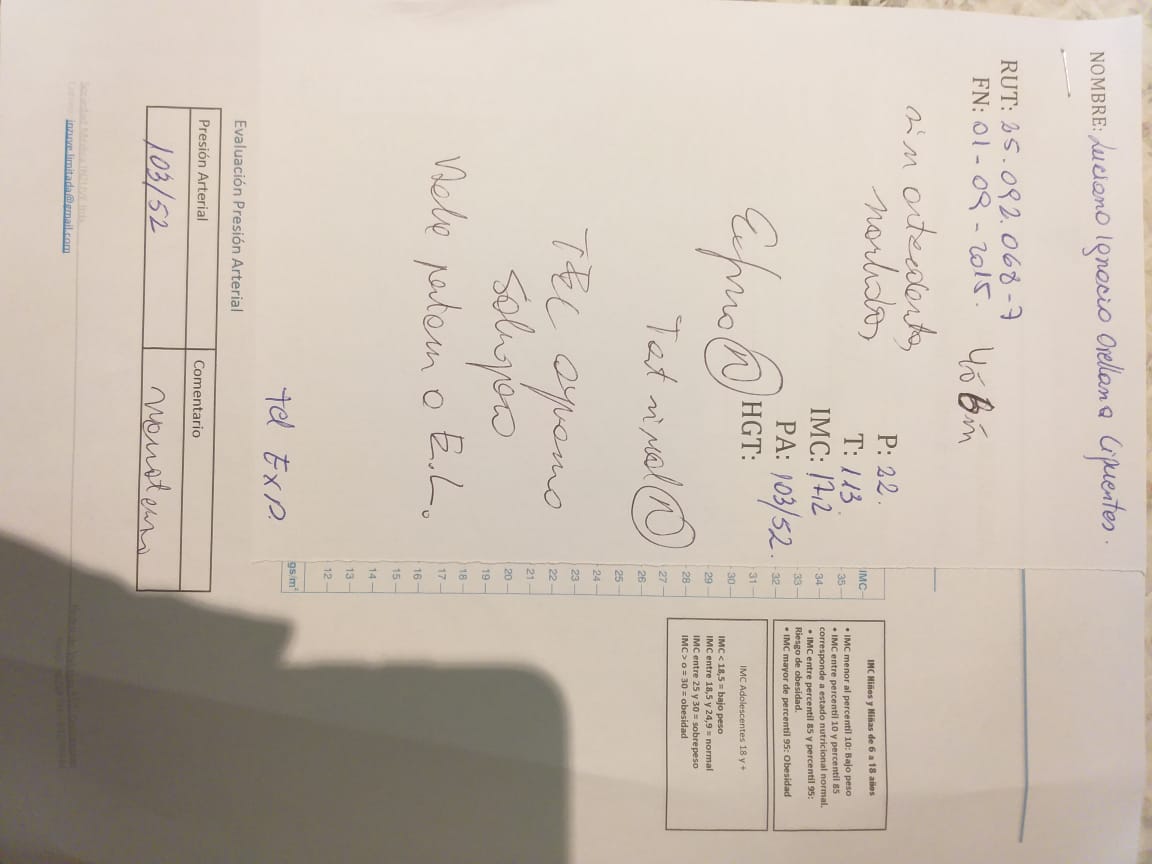 NOMBRE: Luciano Ignacio Orellana Cifuentes.
RUT: 25.092.068-7
FN: 01-09-2015.
sin antecedentes
morbidos
P: 22.
T: 113
IMC: 17,2
PA: 103/52.
HGT:
Ex físico N
Test visual N
TEC
E.L.
tel Exp.
IMC
35
34
33
32
31
30
29
28
27
26
25
24
23
22
21
20
19
18
17
16
15
14
13
12
gs/m²
IMC Niños y Niñas de 6 a 18 años
• IMC menor al percentil 10: Bajo peso
• IMC entre percentil 10 y percentil 85
corresponde a estado nutricional normal.
• IMC entre percentil 85 y percentil 95:
Riesgo de obesidad.
• IMC mayor de percentil 95: Obesidad
IMC Adolescentes 18 y +
IMC < 18,5 = bajo peso
IMC entre 18,5 y 24,9 = normal
IMC entre 25 y 30 = sobrepeso
IMC > o = 30 = obesidad
Evaluación Presión Arterial
Presión Arterial
Comentario
103/52
normotenso
Sociedad Médica INZUVE ltda.
Correo: inzuve.limitada@gmail.com